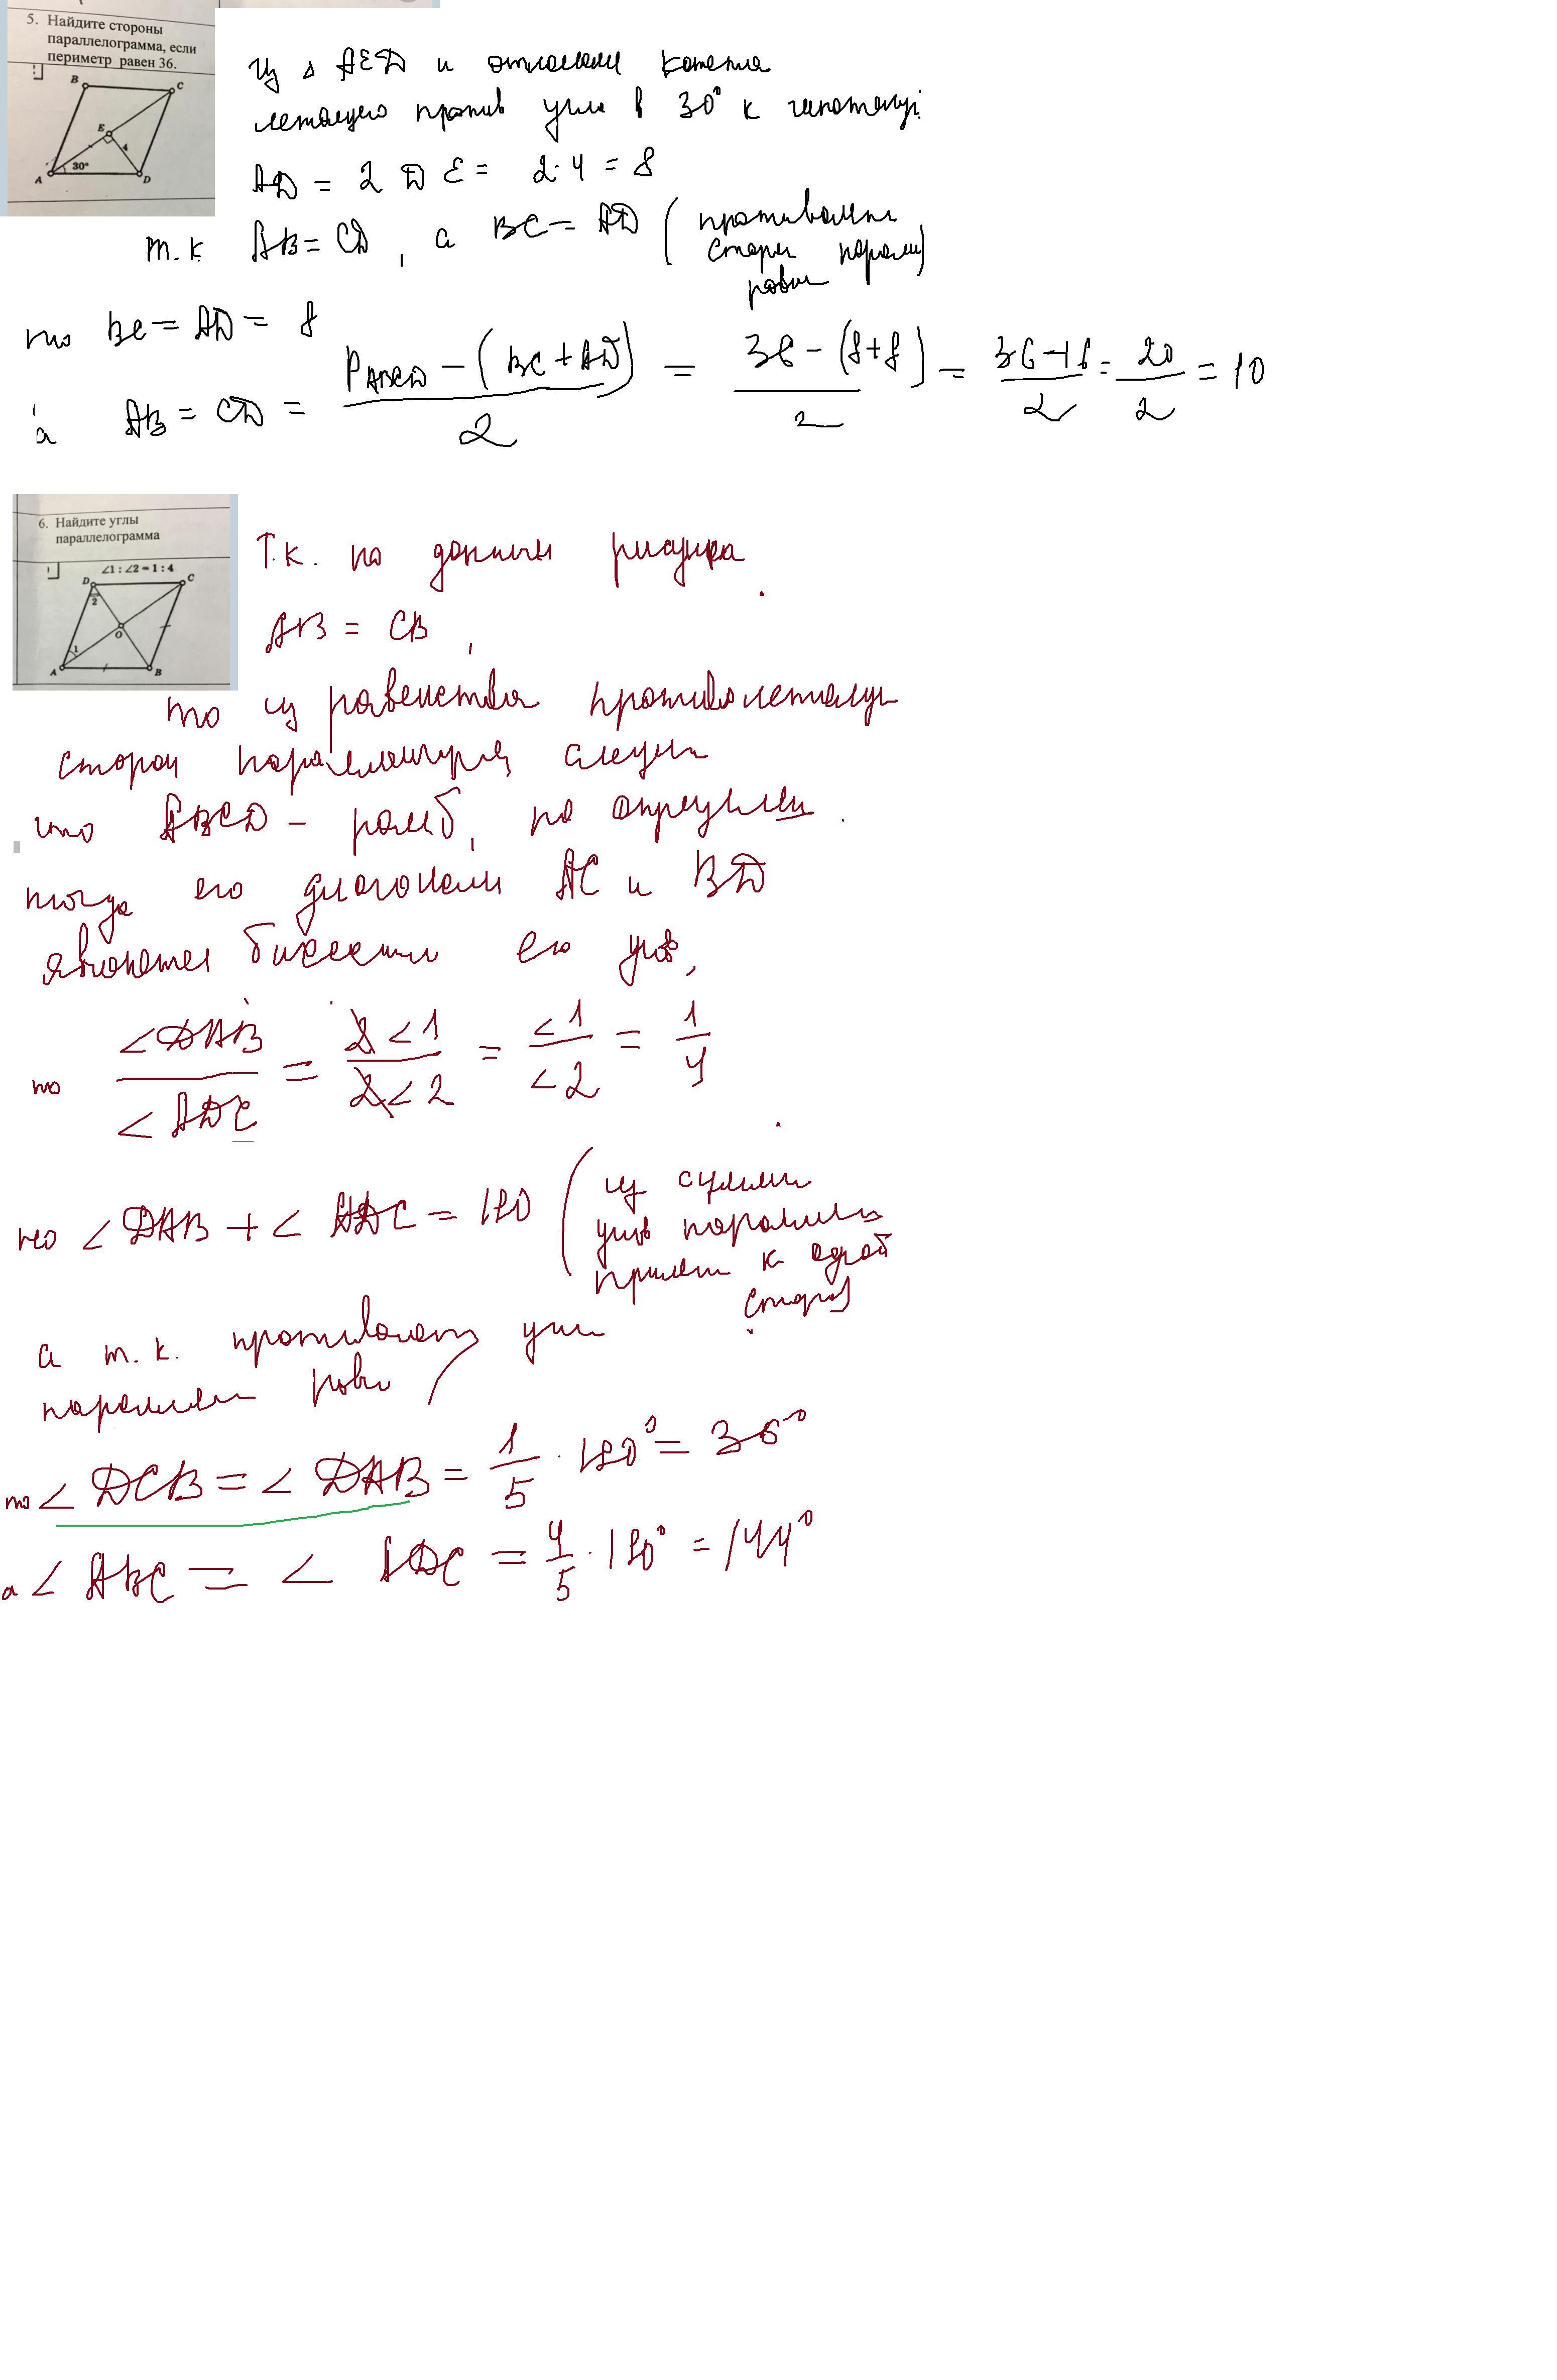 5. Найдите стороны
параллелограмма, если
периметр равен 36.
B
C
E
4
30°
A
D
Из Δ AED и отношения катета
лежащего против угла в 30° к гипотенузе
AD = 2 DE = 2·4 = 8
т.к AB = CD, а BC = AD (противолеж
сторон паралл
равны)
то BC = AD = 8
а AB = CD = (P_ABCD − (BC + AD))/2 = (36 − (8+8))/2 = (36−16)/2 = 20/2 = 10
6. Найдите углы
параллелограмма
∠1 : ∠2 = 1 : 4
D
C
2
O
1
A
B
Т.к. по данным рисунка
AB = CB,
то из равенства противолежащих
сторон параллелограмма следует
что ABCD – ромб, по определен
тогда его диагонали AC и BD
являются биссект его углов,
то ∠DAB/∠ADC = 2∠1/2∠2 = ∠1/∠2 = 1/4
но ∠DAB + ∠ADC = 180 (из суммы
углов параллел
прилеж к одной
стороне)
а т.к. противолеж углы
параллел равны
то ∠DCB = ∠DAB = 1/5 · 180° = 36°
а ∠ABC = ∠ADC = 4/5 · 180° = 144°